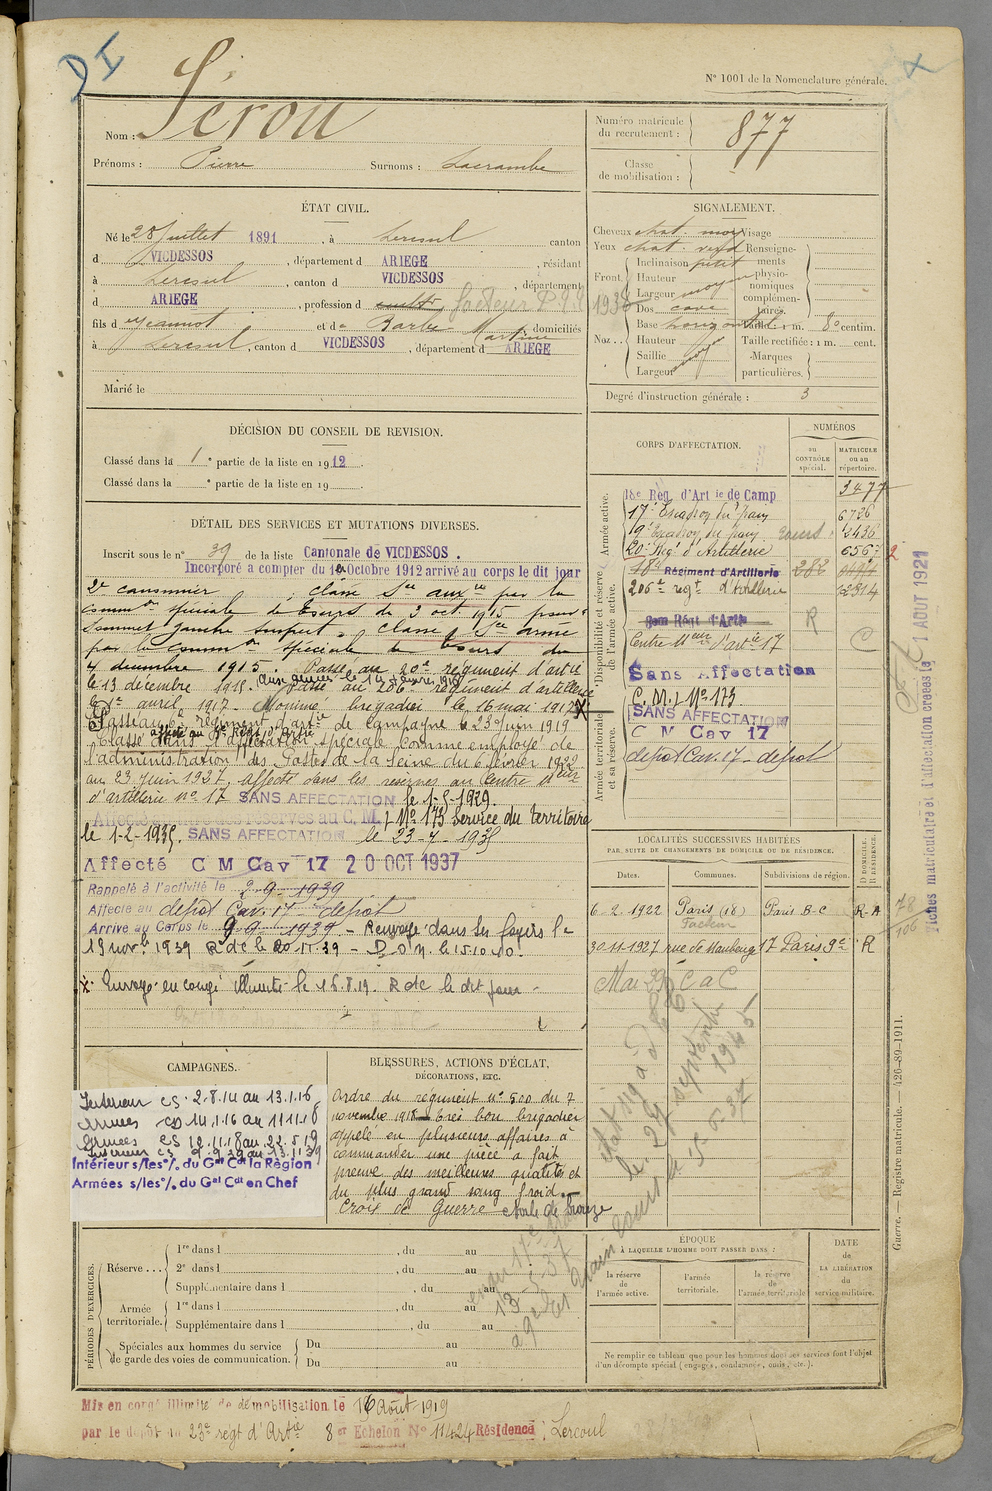 DI
N° 1001 de la Nomenclature générale.
Nom : Sérou
Prénoms : Pierre Surnoms : Lacrambe
Numéro matricule du recrutement : 877
Classe de mobilisation :
ÉTAT CIVIL.
Né le 28 Juillet 1891, à Lercoul canton
d VICDESSOS, département d ARIEGE, résidant
à Lercoul, canton d VICDESSOS, département
d ARIEGE, profession d cultr facteur P.T.T. 1938
fils d Jeannot et de Barbe Martine domiciliés
à Lercoul, canton d VICDESSOS, département d ARIEGE
Marié le
SIGNALEMENT.
Cheveux chat. moy Visage
Yeux chat. verd Renseignements physionomiques complémentaires.
Front Inclinaison petit
Hauteur
Largeur moyen
Nez Dos cave
Base horizontale Taille : 1 m. 80 centim.
Hauteur Taille rectifiée : 1 m. cent.
Saillie moy Marques particulières.
Largeur
Degré d'instruction générale : 3
DÉCISION DU CONSEIL DE REVISION.
Classé dans la 1e partie de la liste en 1912.
Classé dans la e partie de la liste en 19
DÉTAIL DES SERVICES ET MUTATIONS DIVERSES.
Inscrit sous le n° 39 de la liste Cantonale de VICDESSOS.
Incorporé a compter du 1er Octobre 1912 arrivé au corps le dit jour
2e canonnier classé Sce auxre par la
common spéciale de Tours du 2 oct 1915 pour
sommet gauche suspect. Classé Sce armé
par la common spéciale de Tours du
4 décembre 1915. Passé au 20e régiment d'artie
le 13 décembre 1915. Passé au 206e régiment d'artillerie
le 1er avril 1917. Nommé brigadier le 16 mai 1917 X
Passé au régiment d'artie de Campagne le 23 Juin 1919
affecté au Régt d'Artie
Classé dans l'affectation spéciale comme employé de
l'administration des Postes de la Seine du 6 février 1922
au 23 juin 1927, affecté dans les réserves au Centre Meur
d'artillerie n° 17 SANS AFFECTATION le 1-5-1929.
Affecté dans les réserves au C.M. N° 173 Service du territoire
le 1-2-1935. SANS AFFECTATION le 23-7-1935
Affecté C M Cav 17 20 OCT 1937
Rappelé à l'activité le 2-9-1939
Affecté au dépôt Cav. 17 - dépôt
Arrivé au Corps le 9-9-1939 - Renvoyé dans ses foyers le
19 nov. 1939 R de le 20-11-39
X Envoyé en congé illimité le 16.8.19. R de le dit jour -
CORPS D'AFFECTATION.
NUMÉROS
au CONTRÔLE spécial.
MATRICULE ou au répertoire.
Armée active.
18e Reg. d'Artie de Camp 3477
17e Escadron du train 6726
19e Escadron du train
20e Régt d'Artillerie 6567
Disponibilité et réserve de l'armée active.
18e Régiment d'Artillerie 282
206e regt d'Artillerie 12314
Régt d'Artie R
Centre Meur d'artie 17 C
Sans Affectation
C. M. N° 173
Armée territoriale et sa réserve.
SANS AFFECTATION
C M Cav 17
dépôt Cav. 17 - dépôt
LOCALITÉS SUCCESSIVES HABITÉES
PAR SUITE DE CHANGEMENTS DE DOMICILE OU DE RÉSIDENCE.
Dates. Communes. Subdivisions de région. D DOMICILE. R RÉSIDENCE.
6-2-1922 Paris (18) Paris B-C R-A
Facteur
30-11-1927 rue de Maubeuge 17 Paris 9e R
Mai 29 C à C
1 AOUT 1921
Fiches matriculaire et d'affectation créées le
78
106
Guerre. — Registre matricule. — 426-89-1911.
CAMPAGNES.
Intérieur CS. 2.8.14 au 13.1.16
Armées CD 14.1.16 au 11.11.18
Armées CS 12.11.18 au 22.5.19
Intérieur CS 9.9.39 au 13.11.39
Intérieur s/les °/. du Gal Cdt la Région
Armées s/les °/. du Gal Cdt en Chef
BLESSURES, ACTIONS D'ÉCLAT,
DÉCORATIONS, ETC.
Ordre du régiment n° 500 du 7
novembre 1918 - très bon brigadier
appelé en plusieurs affaires à
commander une pièce a fait
preuve des meilleures qualités et
du plus grand sang froid.
Croix de Guerre étoile de bronze
PÉRIODES D'EXERCICES.
Réserve ... 1re dans l , du au
2e dans l , du au
Supplémentaire dans l , du au
Armée territoriale. 1re dans l , du au
Supplémentaire dans l , du au
Spéciales aux hommes du service de garde des voies de communication. Du au
Du au
ÉPOQUE
À LAQUELLE L'HOMME DOIT PASSER DANS :
la réserve de l'armée active.
l'armée territoriale.
la réserve de l'armée territoriale
DATE de LA LIBÉRATION du service militaire.
Ne remplir ce tableau que pour les hommes dont les services font l'objet
d'un décompte spécial (engagés, condamnés, omis, etc.).
Mis en congé illimité de démobilisation le 16 Août 1919
par le dépôt du 23e régt d'Artie 8er Echelon N° 11424 Résidence : Lercoul